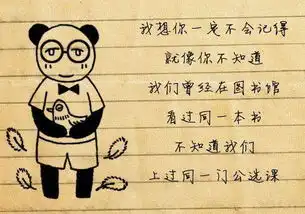 我想你一定不会记得
就像你不知道
我们曾经在图书馆
看过同一本书
不知道我们
上过同一门公选课